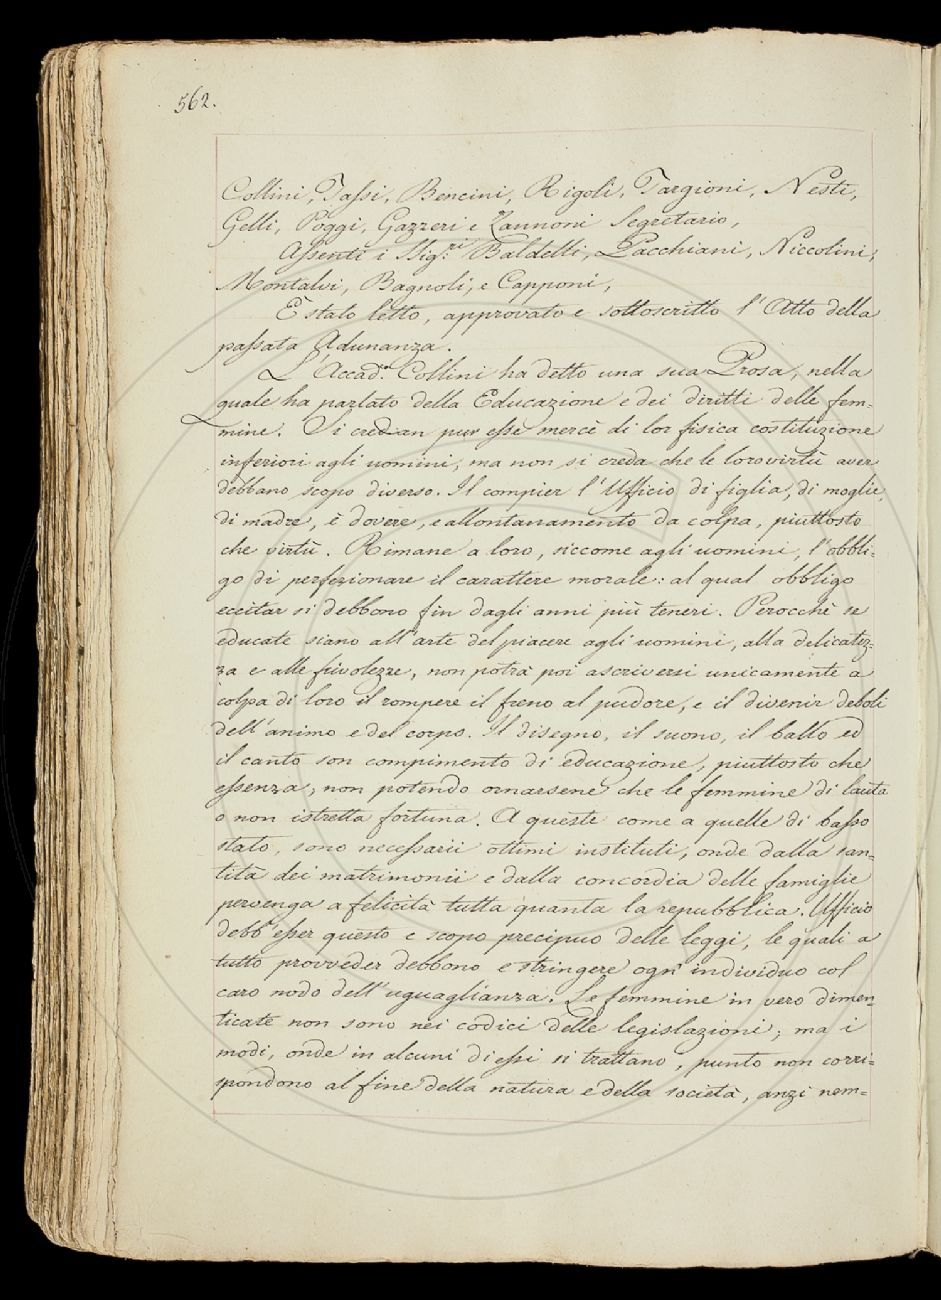 562.
Collini, Tassi, Bencini, Rigoli, Targioni, Nesti,
Gelli, Poggi, Gazzeri e Zannoni Segretario,
Assenti i Sig.ri Baldelli, Pacchiani, Niccolini,
Montalvi, Bagnoli, e Capponi,
È stato letto, approvato e sottoscritto l'Atto della
passata Adunanza.
L'Accad.o Collini ha detto una sua Prosa, nella
quale ha parlato della Educazione e dei diritti delle fem=
mine. Si credian pur esse mercè di lor fisica costituzione
inferiori agli uomini, ma non si creda che le loro virtù aver
debbano scopo diverso. Il compier l'Ufficio di figlia, di moglie,
di madre, è dovere, e allontanamento da colpa, piuttosto
che virtù. Rimane a loro, siccome agli uomini, l'obbli=
go di perfezionare il carattere morale: al qual obbligo
eccitar si debbono fin dagli anni più teneri. Perocchè se
educate siano all'arte del piacere agli uomini, alla delicatez=
za e alle frivolezze, non potrà poi ascriversi unicamente a
colpa di loro il rompere il freno al pudore, e il divenir deboli
dell'animo e del corpo. Il disegno, il suono, il ballo ed
il canto son compimento di educazione, piuttosto che
essenza, non potendo ornarsene che le femmine di lauta
o non istretta fortuna. A queste come a quelle di basso
stato, sono necessarii ottimi instituti, onde dalla san=
tità dei matrimonii e dalla concordia delle famiglie
pervenga a felicità tutta quanta la repubblica. Ufficio
debb'esser questo e scopo precipuo delle leggi, le quali a
tutto provveder debbono e stringere ogn'individuo col
caro nodo dell'uguaglianza. Le femmine in vero dimen=
ticate non sono nei codici delle legislazioni; ma i
modi, onde in alcuni di essi si trattano, punto non corri=
spondono al fine della natura e della società, anzi nem=